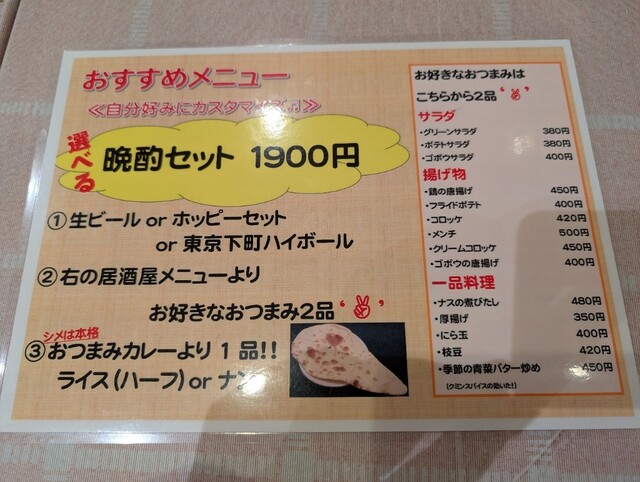 おすすめメニュー
≪自分好みにカスタマイズ♫≫
選べる
晩酌セット 1900円
①生ビール or ホッピーセット
or 東京下町ハイボール
②右の居酒屋メニューより
お好きなおつまみ2品
シメは本格
③おつまみカレーより 1 品!!
ライス(ハーフ) or ナン
お好きなおつまみは
こちらから2品
サラダ
・グリーンサラダ 380円
・ポテトサラダ 380円
・ゴボウサラダ 400円
揚げ物
・鶏の唐揚げ 450円
・フライドポテト 400円
・コロッケ 420円
・メンチ 500円
・クリームコロッケ 450円
・ゴボウの唐揚げ 400円
一品料理
・ナスの煮びたし 480円
・厚揚げ 350円
・にら玉 400円
・枝豆 420円
・季節の青菜バター炒め 450円
(クミンスパイスの効いた!)